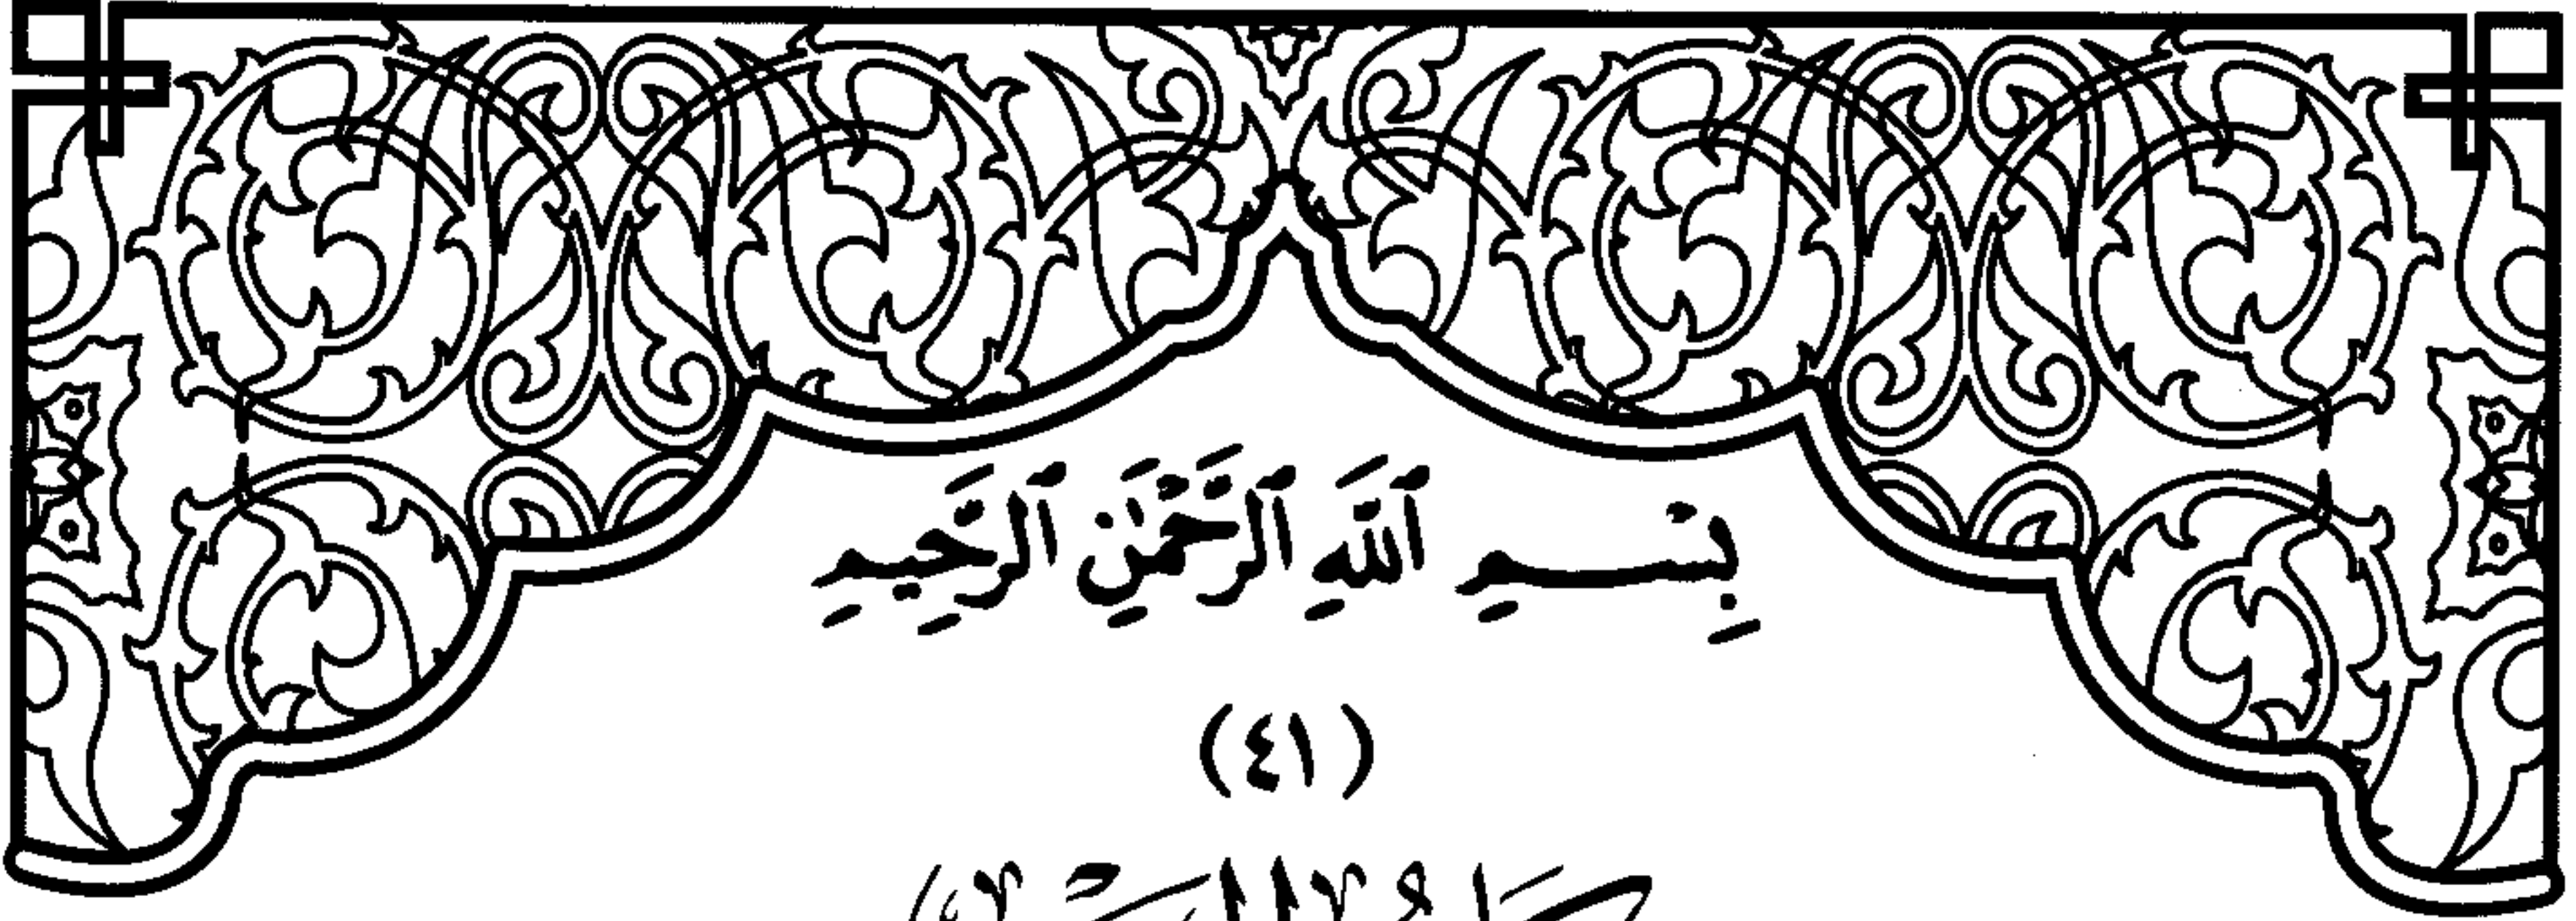 بِسْمِ ٱللَّهِ ٱلرَّحْمَٰنِ ٱلرَّحِيمِ
(٤١)